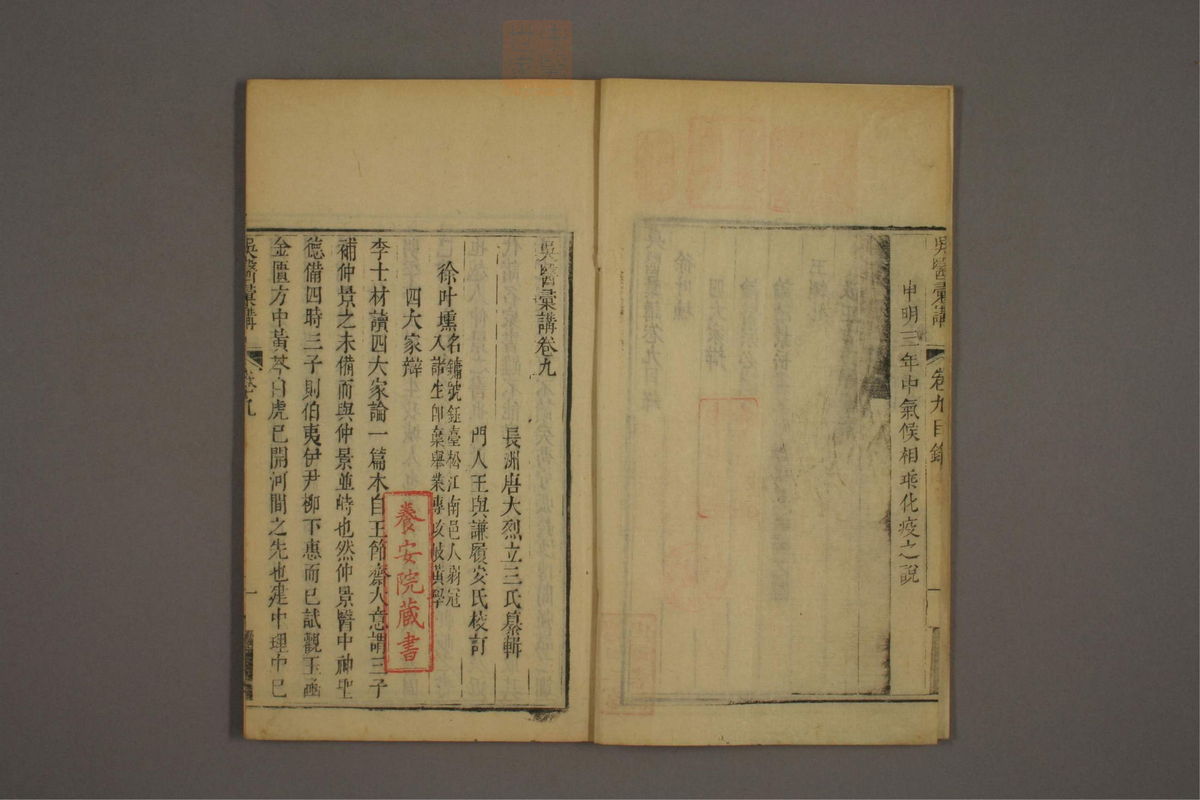 吳醫彙講
卷九目錄
申明三年中氣候相乖化疫之說
吳醫彙講卷九
長洲唐大烈立三氏纂輯
門人王與謙履安氏校訂
徐叶壎名鏞號鈺臺松江南邑人弱冠
入諸生即棄舉業專攻岐黃學
四大家辯
李士材讀四大家論一篇本自王節齋大意謂三子
補仲景之未備而與仲景並峙也然仲景醫中神聖
德備四時三子則伯夷伊尹柳下惠而已試觀玉函
金匱方中黃芩白虎已開河間之先也建中理中已
吳醫彙講
卷九
一
養安院藏書